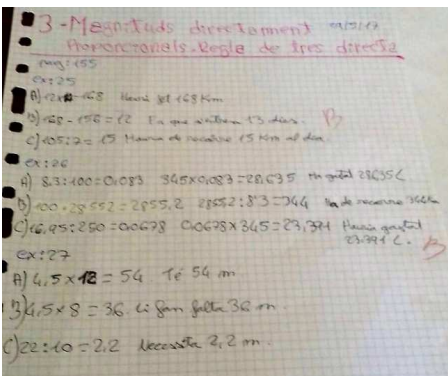 3-Megnituds directament 09/5/17
Proporcionals. Regle de tres directa
pag: 155
ex: 25
A) 168 168 km
B) 168 - 156 = 12 13 dies. B
C) 105:7 = 15 15 km al dia.
ex: 26
A) 8,3:100=0,083 345x0,083=28,635 Ha gastat 28,635 L
B) 100·28552=2855,2 2855,2:8,3=344 Ha de recorre 344 km
C) 16,95:250=0,0678 0,0678x345=23,391 Hauria gastat
23,391 L. B
ex: 27
A) 4,5x12=54 Té 54 m
B) 4,5x8=36. Li fan falta 36 m.
C) 22:10=2,2 Necessita 2,2 m.